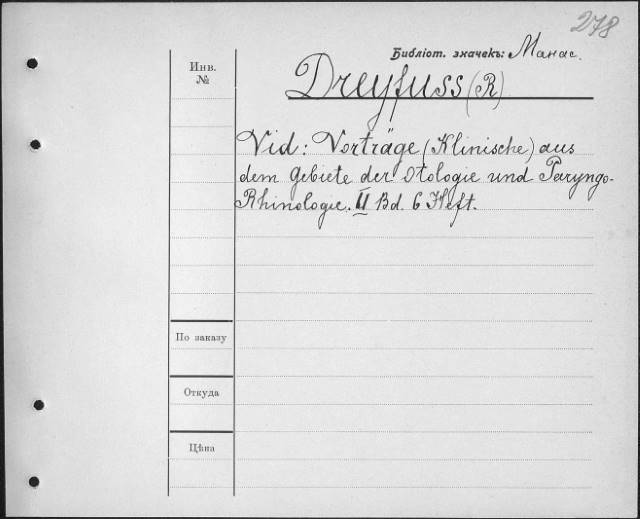 278
Библіот. значекъ: Манас.
Инв.
№
Dreyfuss (R)
Vid: Vorträge (Klinische) aus
dem Gebiete der Otologie und Paryngo-
Rhinologie. II Bd. 6 Heft.
По заказу
Откуда
Цѣна